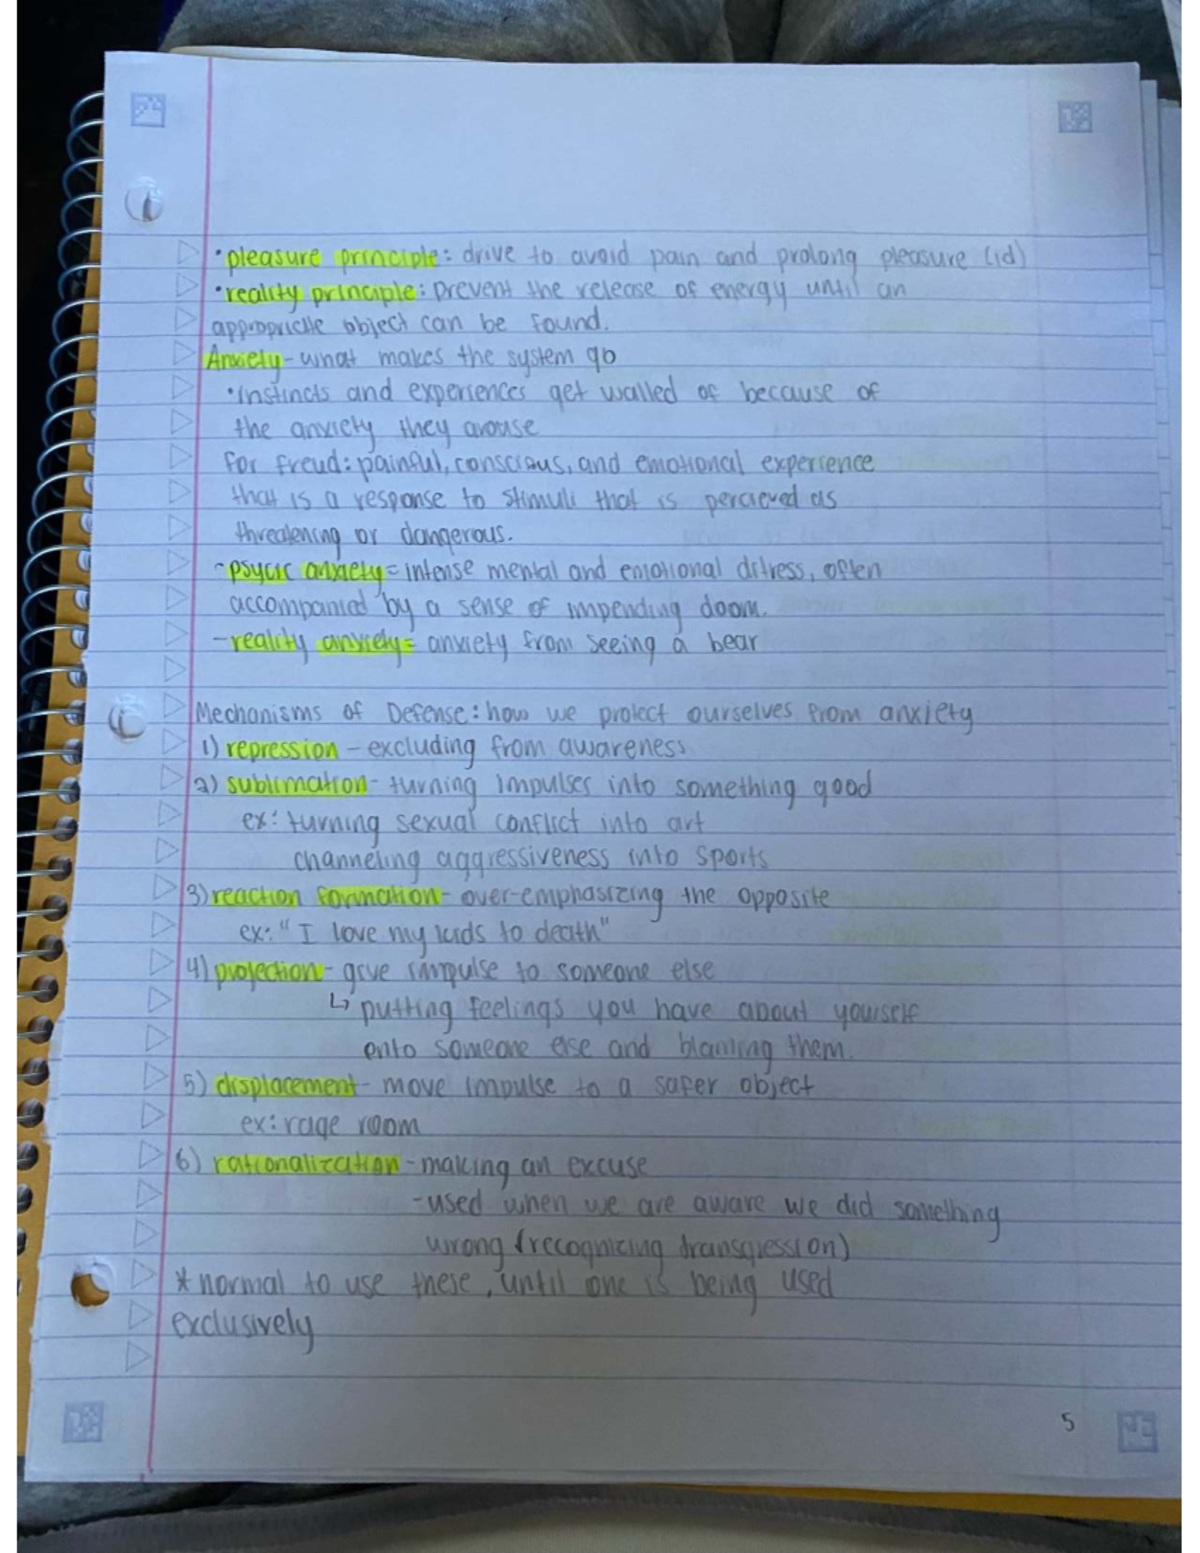 ·pleasure principle: drive to avoid pain and prolong pleasure (id)
·reality principle: prevent the release of energy until an
appropriate object can be found.
Anxiety - what makes the system go
·instincts and experiences get walled of because of
the anxiety they arouse
for freud: painful, conscious, and emotional experience
that is a response to stimuli that is percieved as
threatening or dangerous.
-psycic anxiety = intense mental and emotional ditress, often
accompanied by a sense of impending doom.
-reality anxiety = anxiety from seeing a bear
Mechanisms of Defense: how we protect ourselves from anxiety
1) repression - excluding from awareness
2) sublimation - turning impulses into something good
ex: turning sexual conflict into art
channeling aggressiveness into sports
3) reaction formation - over-emphasizing the opposite
ex: "I love my kids to death"
4) projection - give impulse to someone else
↳ putting feelings you have about yourself
onto someone else and blaming them.
5) displacement - move impulse to a safer object
ex: rage room
6) rationalization - making an excuse
-used when we are aware we did something
wrong (recognizing transgression)
* normal to use these, until one is being used
exclusively
5